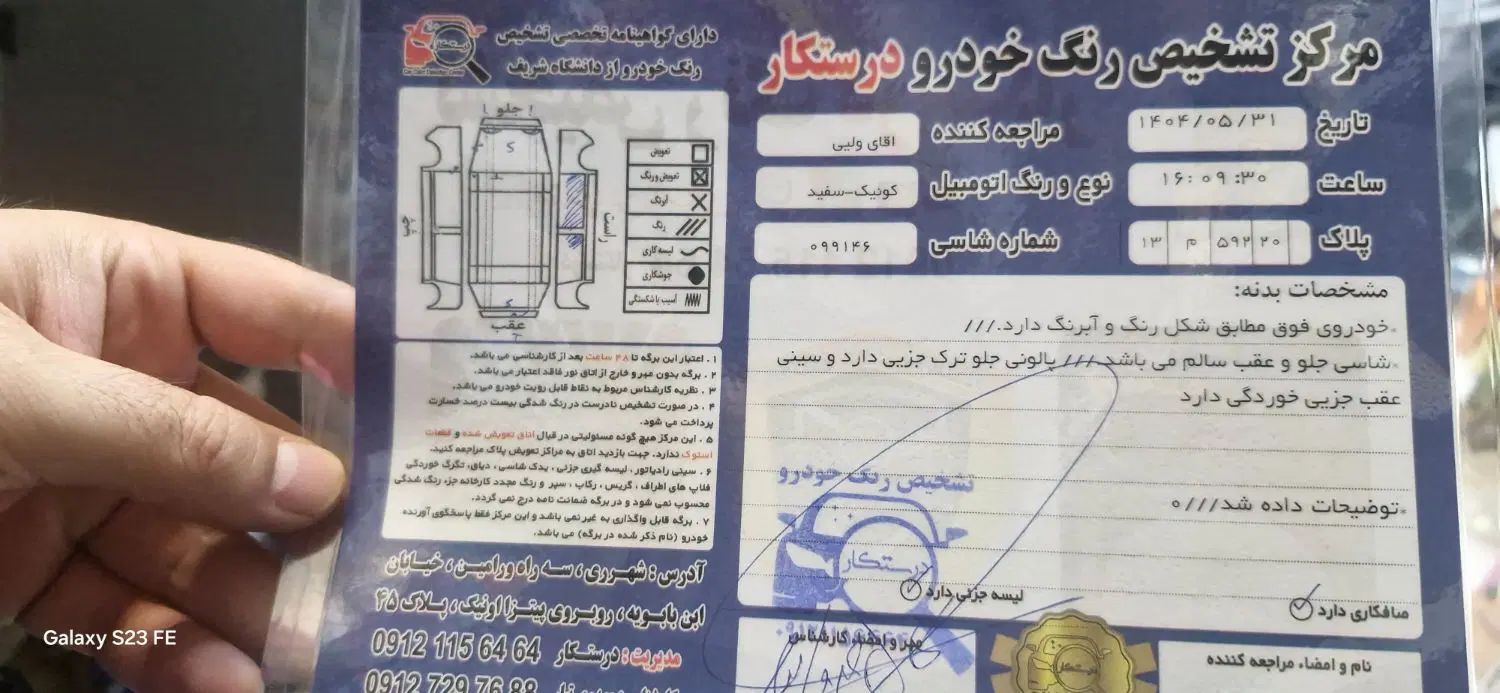 مرکز تشخیص رنگ خودرو درستکار
دارای گواهینامه تخصصی تشخیص
رنگ خودرو از دانشگاه شریف
تاریخ ۱۴۰۴/۰۵/۳۱
مراجعه کننده اقای ولیی
ساعت ۱۶:۰۹:۳۰
نوع و رنگ اتومبیل کوئیک-سفید
پلاک ۱۳ م ۵۹۲ ۲۰
شماره شاسی ۰۹۹۱۴۶
مشخصات بدنه:
*خودروی فوق مطابق شکل رنگ و آبرنگ دارد.///
*شاسی جلو و عقب سالم می باشد.///پالونی جلو ترک جزیی دارد و سینی
عقب جزیی خوردگی دارد
*توضیحات داده شد///۰
صافکاری دارد
لیسه جزئی دارد
تشخیص رنگ خودرو
درستکار
مهر و امضاء کارشناس
نام و امضاء مراجعه کننده
درستکار
جلو
عقب
چپ
راست
S
S
تعویض
تعویض و رنگ
آبرنگ
رنگ
لیسه کاری
جوشکاری
آسیب یا شکستگی
۱. اعتبار این برگه تا ۴۸ ساعت بعد از کارشناسی می باشد.
۲. برگه بدون مهر و خارج از اتاق نور فاقد اعتبار می باشد.
۳. نظریه کارشناس مربوط به نقاط قابل رویت خودرو می باشد.
۴. در صورت تشخیص نادرست در رنگ شدگی بیست درصد خسارت
پرداخت می شود.
۵. این مرکز هیچ گونه مسئولیتی در قبال اتاق تعویض شده و قطعات
استوک ندارد. جهت بازدید اتاق به مراکز تعویض پلاک مراجعه کنید.
۶. سینی رادیاتور، لیسه گیری جزئی، یدک شاسی، دیاق، تگرگ خوردگی
فلاپ های اطراف، گریس، رکاب، سپر و رنگ مجدد کارخانه جزء رنگ شدگی
محسوب نمی شود و در برگه ضمانت نامه درج نمی گردد.
۷. برگه قابل واگذاری به غیر نمی باشد و این مرکز فقط پاسخگوی آورنده
خودرو (نام ذکر شده در برگه) می باشد.
آدرس: شهرری، سه راه ورامین، خیابان
ابن بابویه، روبروی پیتزا اونیک، پلاک ۴۵
مدیریت: درستکار 0912 115 64 64
0912 729 76 88
Galaxy S23 FE